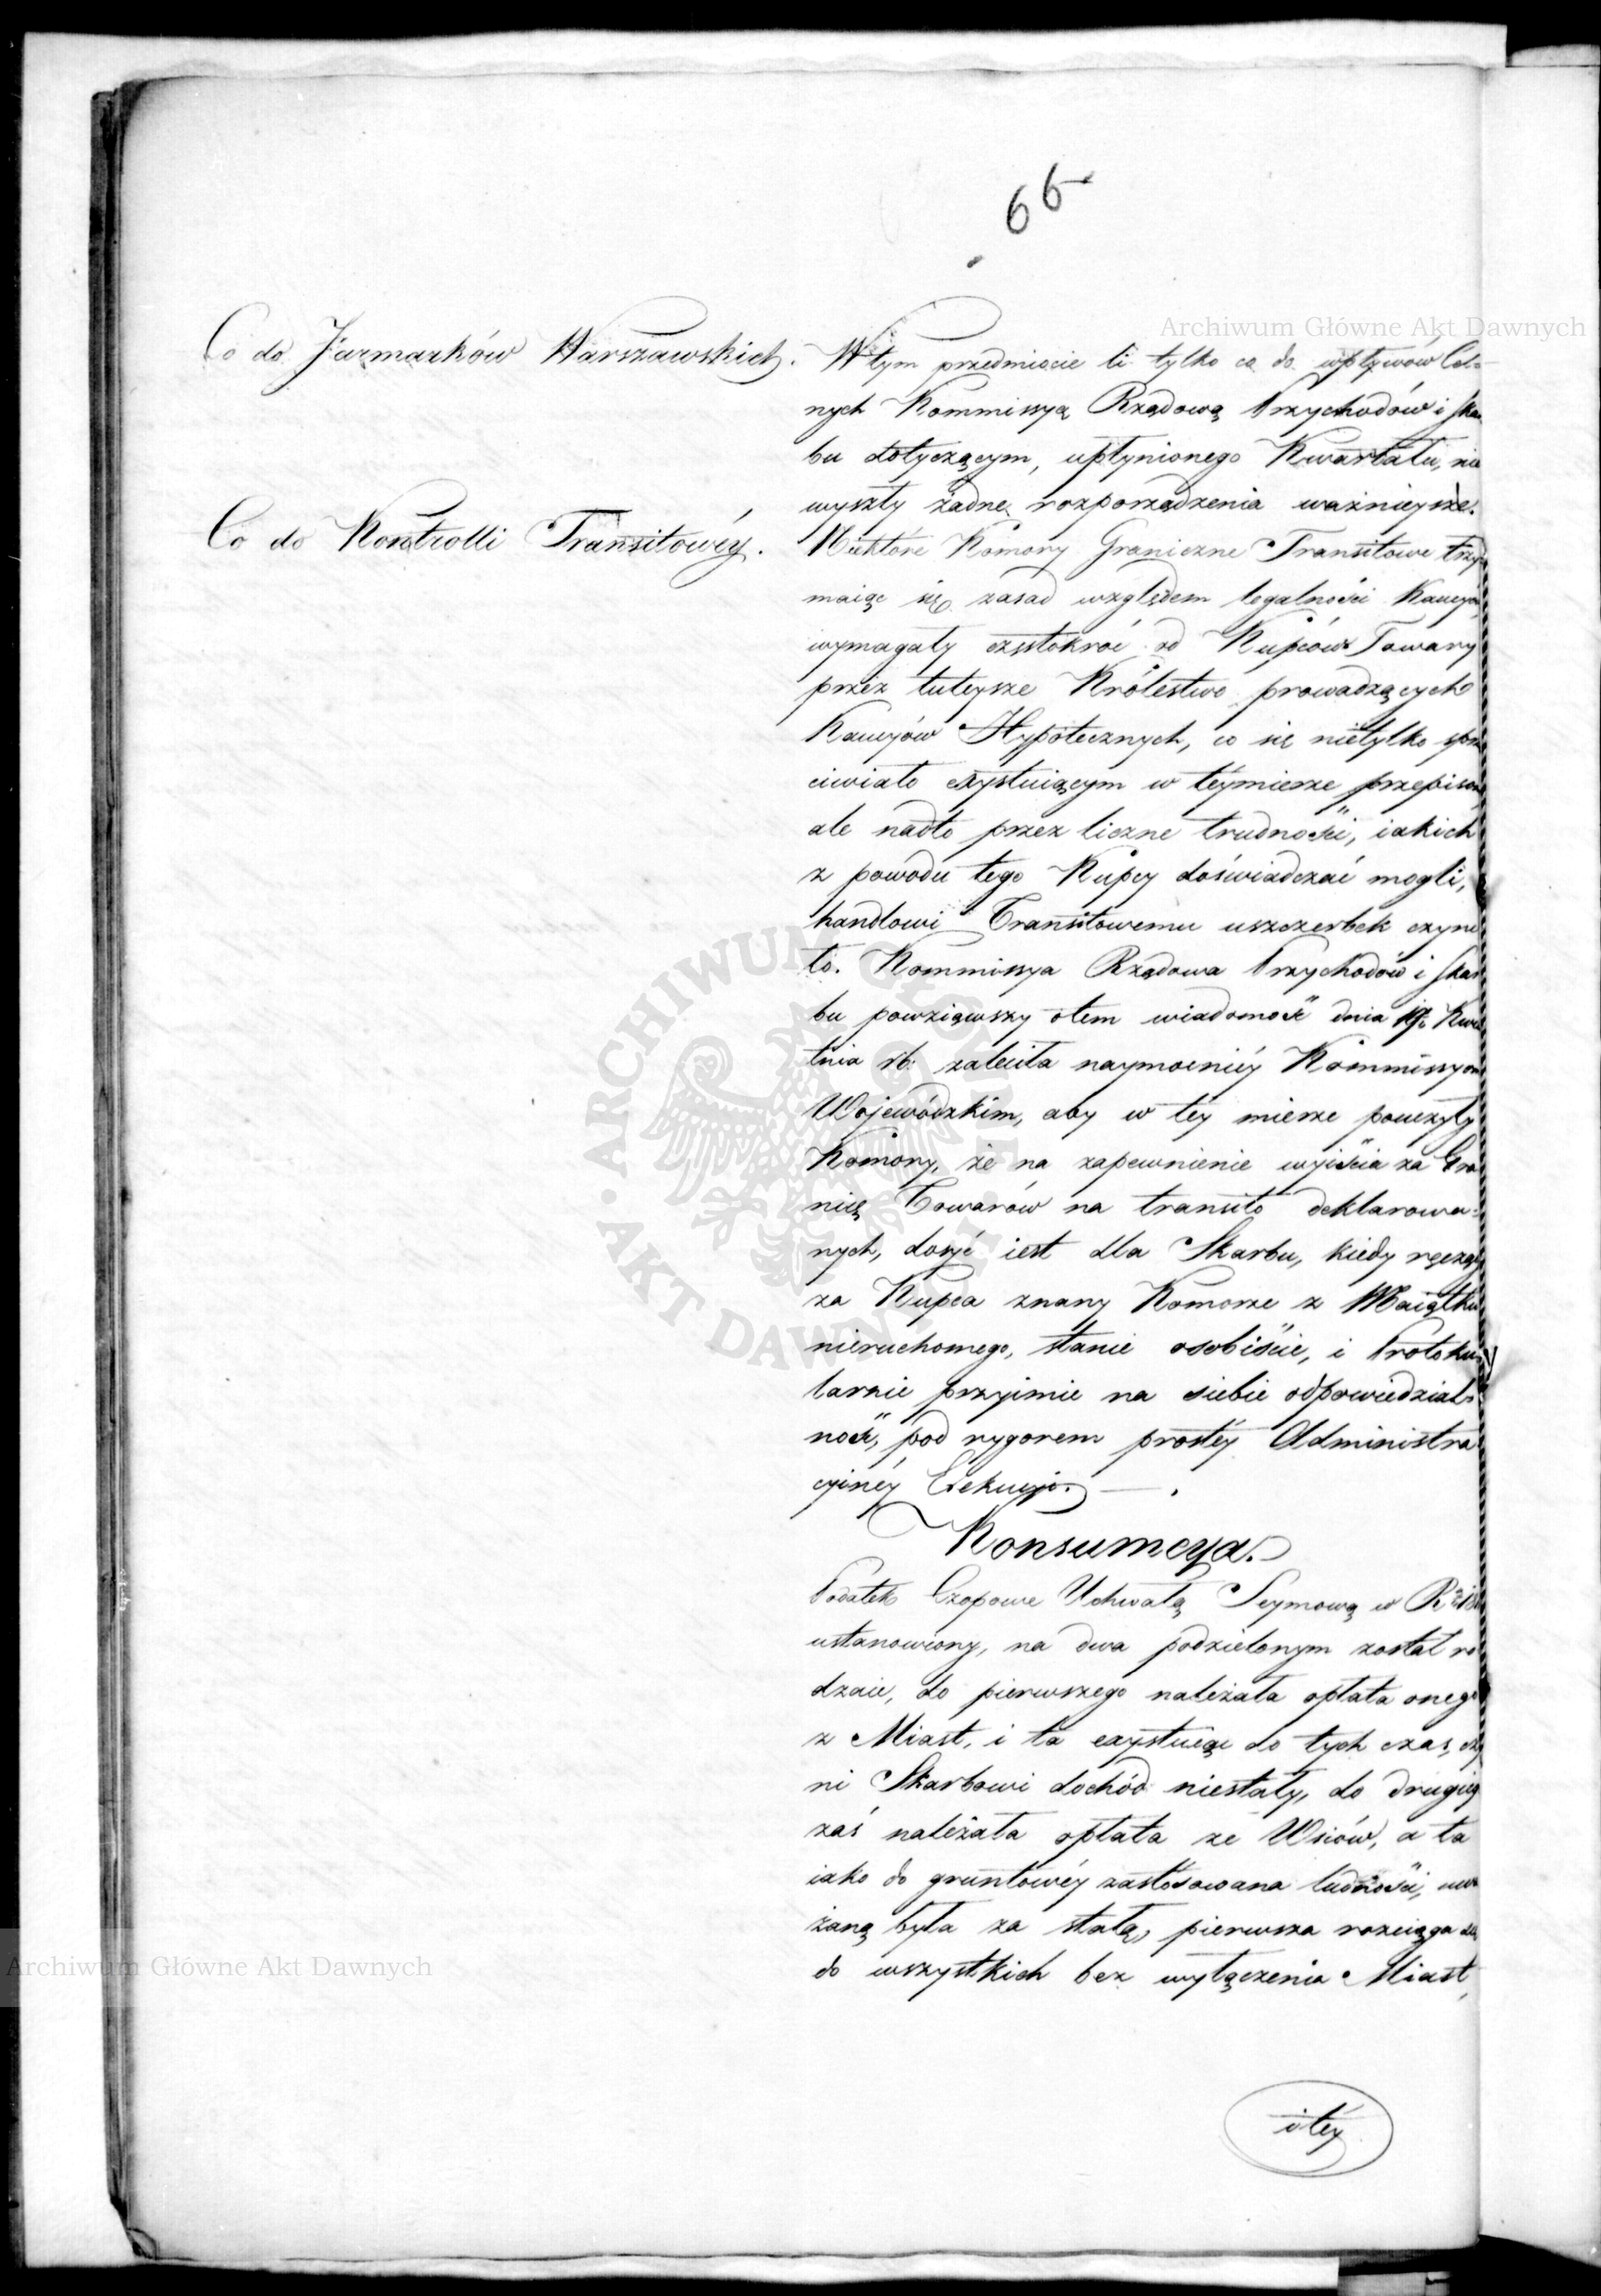 66
Co do Jarmarków Warszawskich.
W tym przedmiocie li tylko co do wpływów Cel=
nych Kommissyą Rządową Przychodów i Skar
bu dotyczącym, upłynionego Kwartału, nie
wyszły żadne rozporządzenia ważnieysze.
Co do Kontrolli Transitowéy.
Niektóre Komory Graniczne Transitowe trzy
maiąc się zasad względem legalności Kaucyi
wymagały częstokroć od Kupców Towary
przez tuteysze Królestwo prowadzących
Kaucyów Hypotecznych, co się nietylko sprze
ciwiało exystuiącym w téymierze przepisom
ale nadto przez liczne trudności, iakich
z powodu tego Kupcy doświadczać mogli,
handlowi Transitowemu uszczerbek czyni
ło. Kommissya Rządowa Przychodów i Skar
bu powziąwszy otem wiadomość dnia Kwie
tnia rb: zaleciła naymocniéy Kommissyom
Wojewódzkim, aby w téy mierze pouczyły
Komory, że na zapewnienie wyiścia za Gra
nicę Towarów na transito deklarowa=
nych, dosyć iest dla Skarbu, kiedy ręczący
za Kupca znany Komorze z Maiątku
nieruchomego, stanie osobiście, i Protoku
larnie przyimie na siebie odpowiedzial=
ność, pod rygorem prostéy Administra
cyinéy Exekucyi.
Konsumcya.
Podatek Czopowe Uchwałą Seymową w R
ustanowiony, na dwa podzielonym został ro
dzaie, do pierwszego należała opłata onego
z Miast, i ta exystuiąc do tych czas, czy
ni Skarbowi dochód niestały, do drugieg
zaś należała opłata ze Wsiów, a ta
iako do gruntowéy zastosowana ludności, uwa
żaną była za stałą, pierwsza rozciąga się
do wszystkich bez wyłączenia Miast,
i téy
Archiwum Główne Akt Dawnych
Archiwum Główne Akt Dawnych
ARCHIWUM GŁÓWNE AKT DAWNYCH